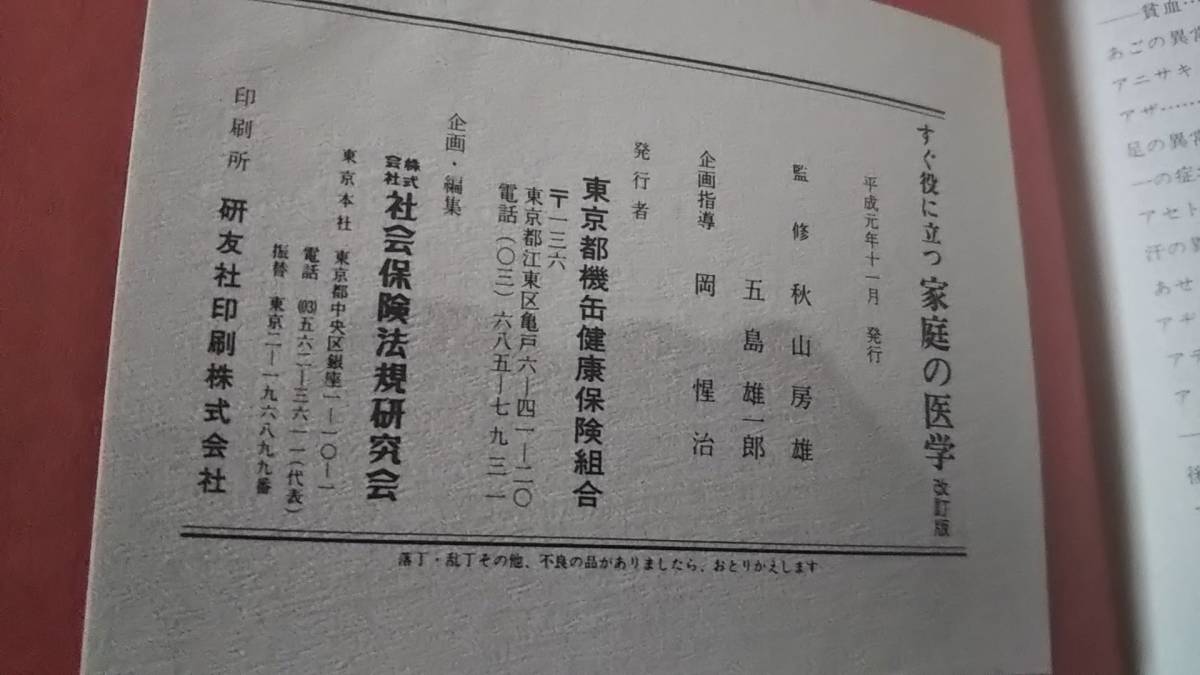 すぐ役に立つ 家庭の医学 改訂版
平成元年十一月 発行
監修 秋山房雄
五島雄一郎
企画指導 岡惺治
発行者
東京都機缶健康保険組合
〒一三六
東京都江東区亀戸六―四一―二〇
電話(〇三)六八五―七九三一
企画・編集
株式会社 社会保険法規研究会
東京本社 東京都中央区銀座一―一〇―一
電話 (03)五六二―三六一一(代表)
振替 東京二―一九六八九九番
印刷所 研友社印刷株式会社
落丁・乱丁その他、不良の品がありましたら、おとりかえします
―貧血…
あごの異常
アニサキ
アザ……
足の異常
―の症
アセト
汗の異
あせ
アキ